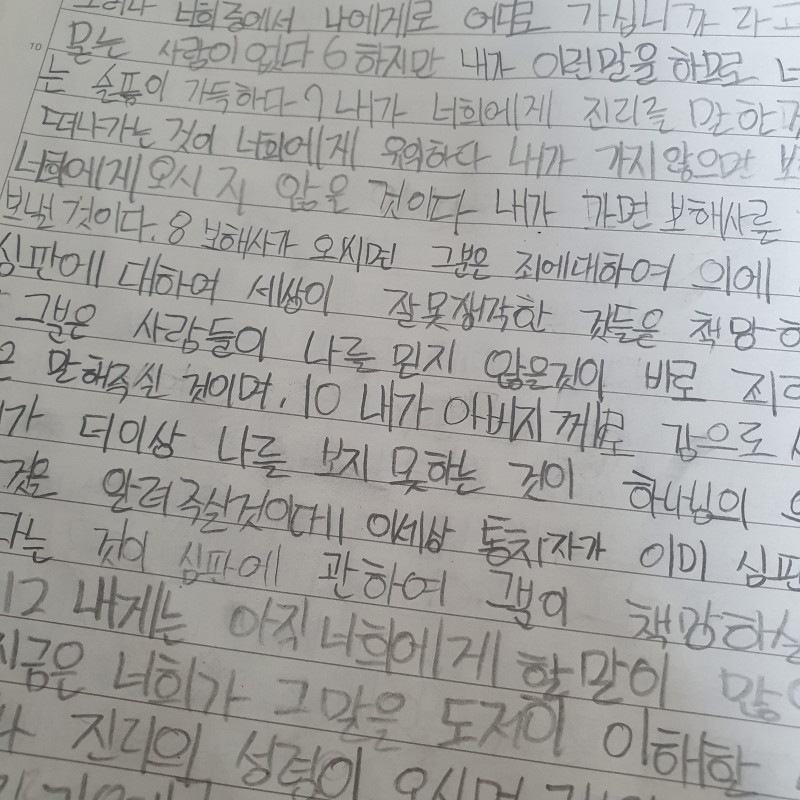 그러나 너희중에서 나에게로 어디로 가십니까 라고
10
묻는 사람이 없다 6 하지만 내가 이런말을 하므로 너
는 슬픔이 가득하다 7 내가 너희에게 진리를 말한다
떠나가는 것이 너희에게 유익하다 내가 가지않으면 보
너희에게 오시지 않을 것이다 내가 가면 보해사를
보낼것이다. 8 보해사가 오시면 그분은 죄에대하여 의에
심판에 대하여 세상이 잘못생각한 것들을 책망하
그분은 사람들이 나를 믿지 않을것이 바로 죄
말해주실 것이며. 10 내가 아버지께로 감으로
가 더이상 나를 보지 못하는 것이 하나님의 의
것을 알려주실것이다 11 이세상 통치자가 이미 심판
다는 것이 심판에 관하여 그분이 책망하실
12 내게는 아직 너희에게 할말이 많
지금은 너희가 그말을 도저히 이해할
진리의 성령이 오시면